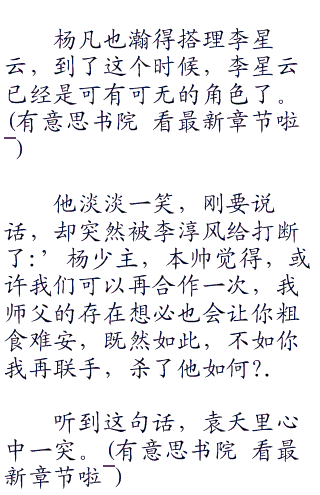 杨凡也瀚得搭理李星
云，到了这个时候，李星云
已经是可有可无的角色了。
(有意思书院 看最新章节啦
¯)
他淡淡一笑，刚要说
话，却突然被李淳风给打断
了:’ 杨少主，本帅觉得，或
许我们可以再合作一次，我
师父的存在想必也会让你粗
食难安，既然如此，不如你
我再联手，杀了他如何?.
听到这句话，袁天里心
中一突。(有意思书院 看最
新章节啦¯)